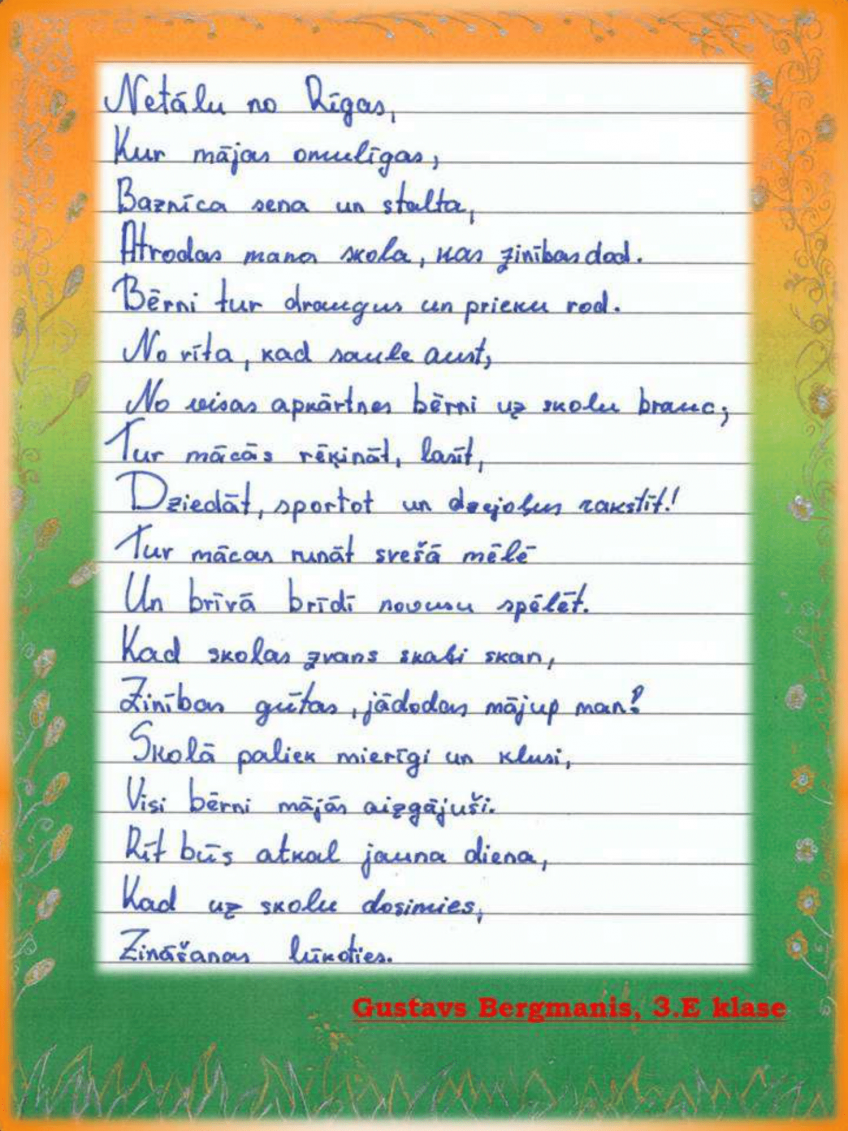 Netālu no Rīgas,
Kur mājas omulīgas,
Baznīca sena un stalta,
Atrodas mana skola, kas zinības dod.
Bērni tur draugus un prieku rod.
No rīta, kad saule aust,
No visas apkārtnes bērni uz skolu brauc;
Tur mācās rēķināt, lasīt,
Dziedāt, sportot un dzejoļus rakstīt!
Tur mācas runāt svešā mēlē
Un brīvā brīdī novusu spēlēt.
Kad skolas zvans skaļi skan,
Zinības gūtas, jādodas mājup man!
Skolā paliek mierīgi un klusi,
Visi bērni mājās aizgājuši.
Rīt būs atkal jauna diena,
Kad uz skolu dosimies,
Zināšanas lūkoties.
Gustavs Bergmanis, 3.E klase